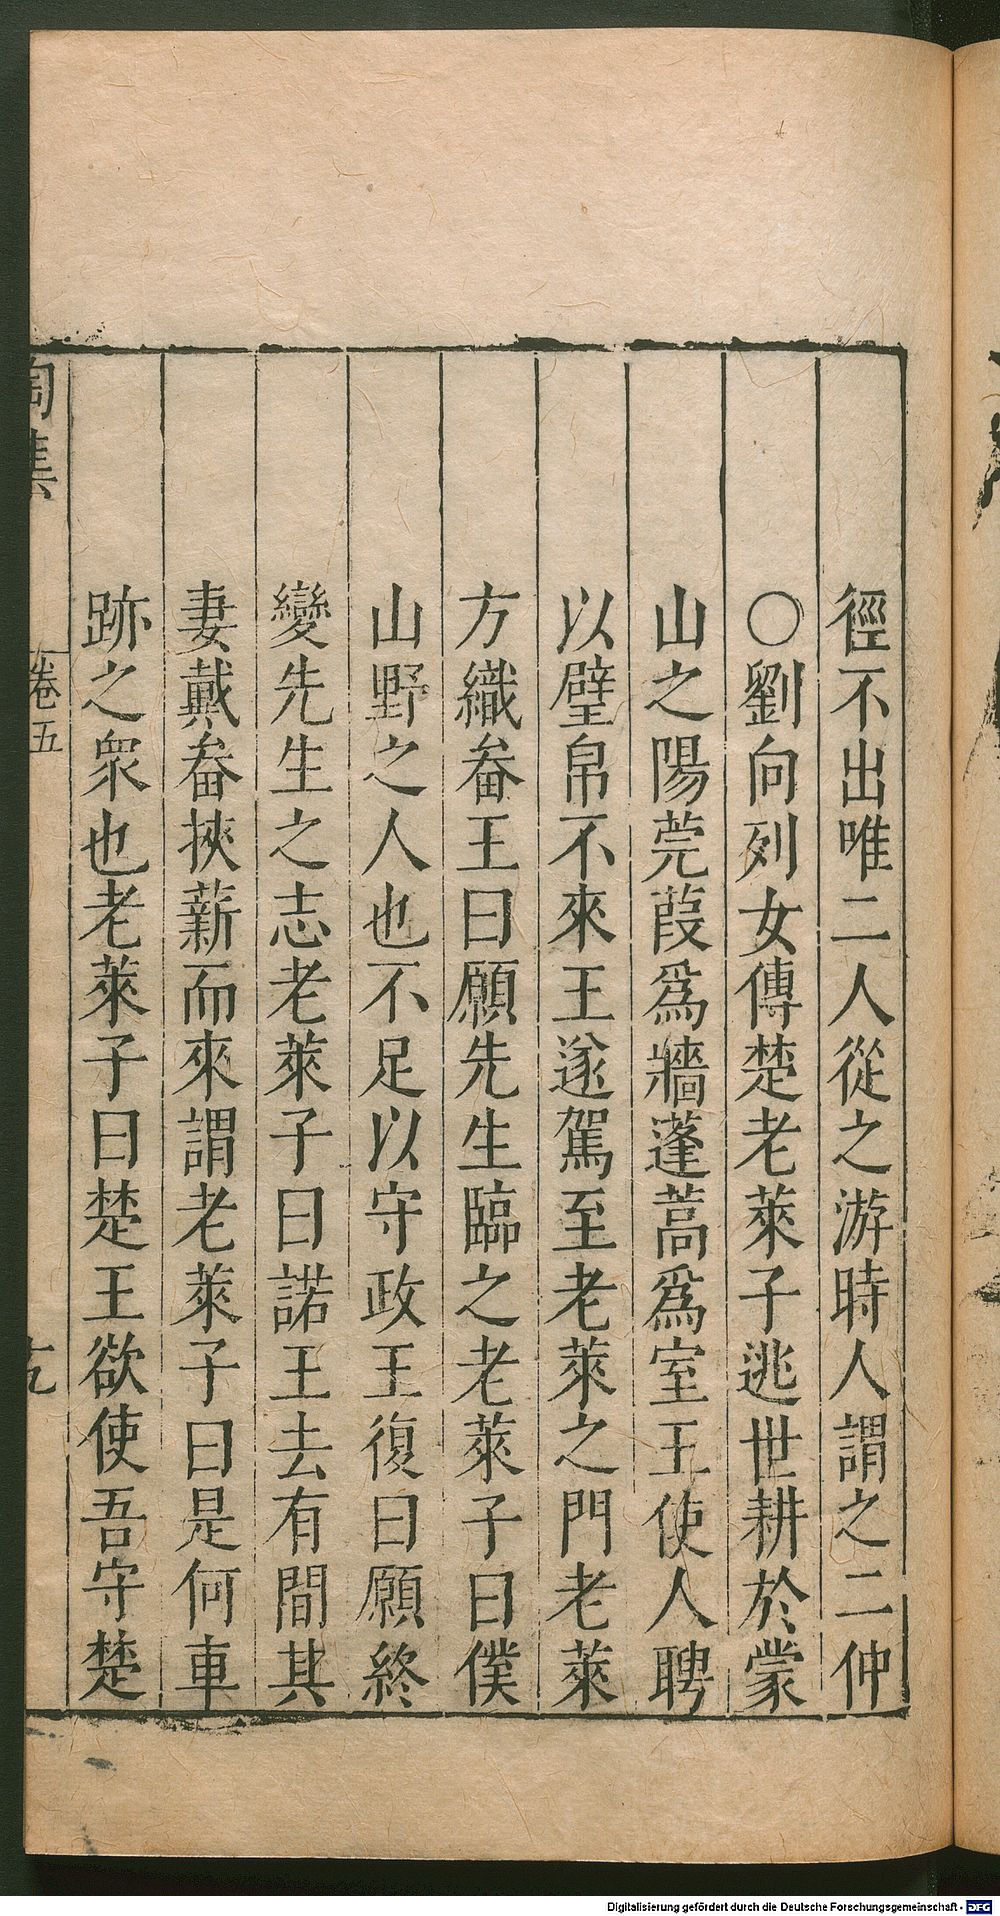 徑不出唯二人從之游時人謂之二仲
○劉向列女傳楚老萊子逃世耕於蒙
山之陽莞葭爲牆蓬蒿爲室王使人聘
以璧帛不來王遂駕至老萊之門老萊
方織畚王曰願先生臨之老萊子曰僕
山野之人也不足以守政王復曰願終
變先生之志老萊子曰諾王去有間其
妻戴畚挾薪而來謂老萊子曰是何車
跡之衆也老萊子曰楚王欲使吾守楚
陶集
卷五
Digitalisierung gefördert durch die Deutsche Forschungsgemeinschaft - DFG